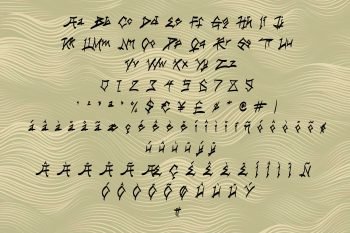 Aa Bb Cc Dd Ee Ff Gg Hh Ii Jj
Kk Ll Mm Nn Oo Pp Qq Rr Ss Tt Uu
Vv Ww Xx Yy Zz
0 1 2 3 4 5 6 7 8 9
% $ € ¥ £ @ # |
á à â ä ã å æ ç é è ê ë í ì î ï ñ ó ò ô ö õ ø
ú ù û ü ÿ
Á À Â Ä Ã Å Æ Ç É È Ê Ë Í Ì Î Ï Ñ
Ó Ò Ô Ö Õ Ø Ú Ù Û Ü Ÿ